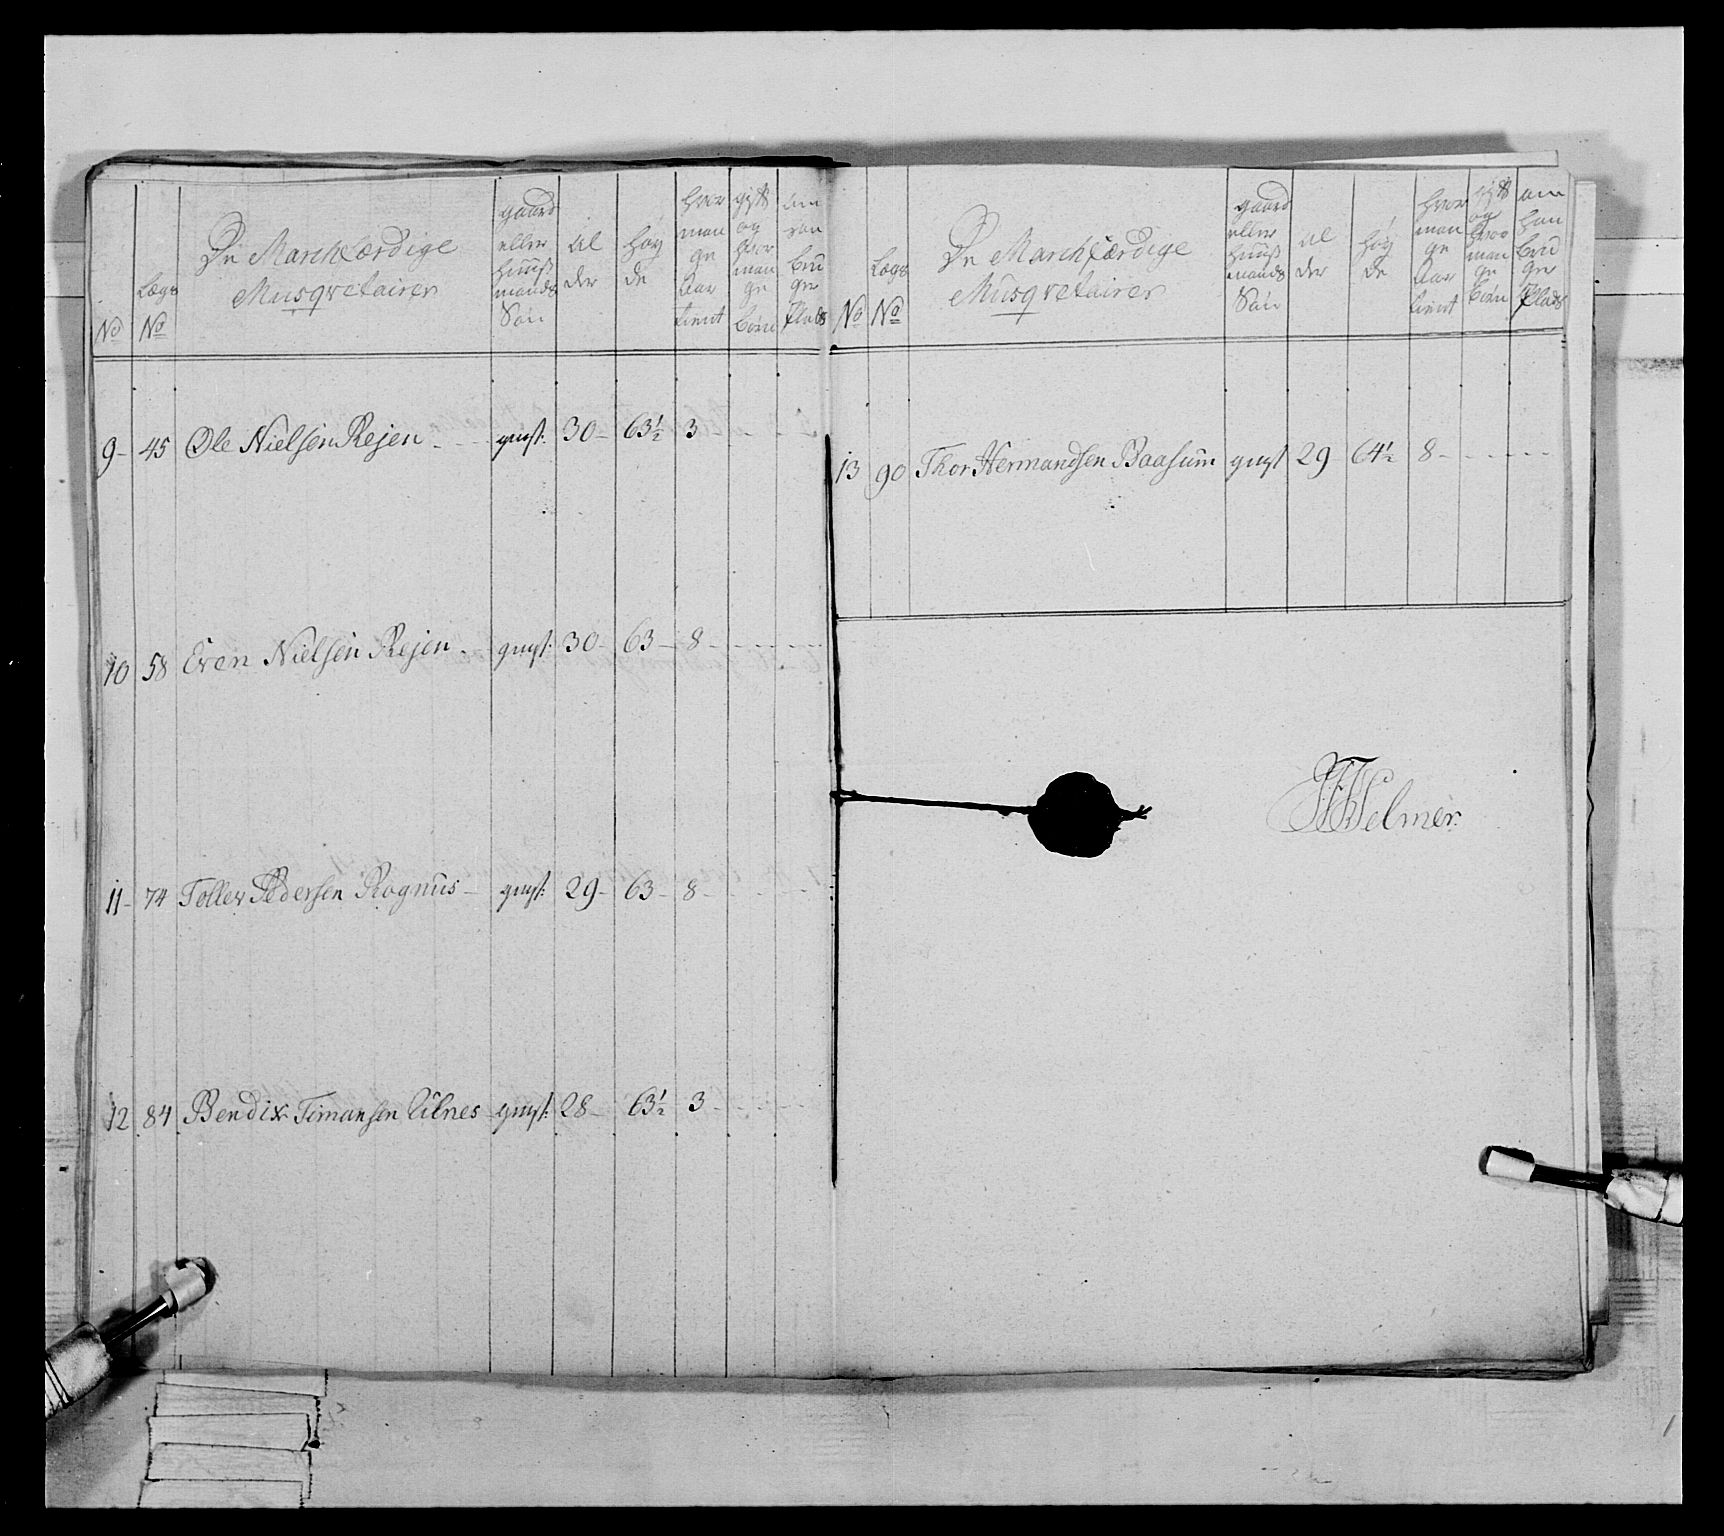 No
Lægs No
De Marchfærdige
Musqvetairer
gaard eller huus mands Søn
al der
høy de
hvor man ge Aar tient
gift og hvor man ge børn
om han bru ger Plads
9- 45 Ole Nielsen Rejen - - gmſ: 30- 63½ 3 - -
10 58 Even Nielsen Rejen - gmſ: 30- 63- 8 - - - - -
11- 74 Toller Pedersen Rognus - gmſ: 29- 63- 8- - - - -
12 84 Bendix Timansen Ulnes gmſ: 28- 63½ 3 - - - - -
No
Lægs No
De Marchfærdige
Musqvetairer
gaard eller huus mands Søn
al der
høy de
hvor man ge Aar tient
gift og hvor man ge børn
om han bru ger Plads
13 90 Thor Hermandsen Baasum gmſ 29 64½ 8- - - - - -
Welmer.